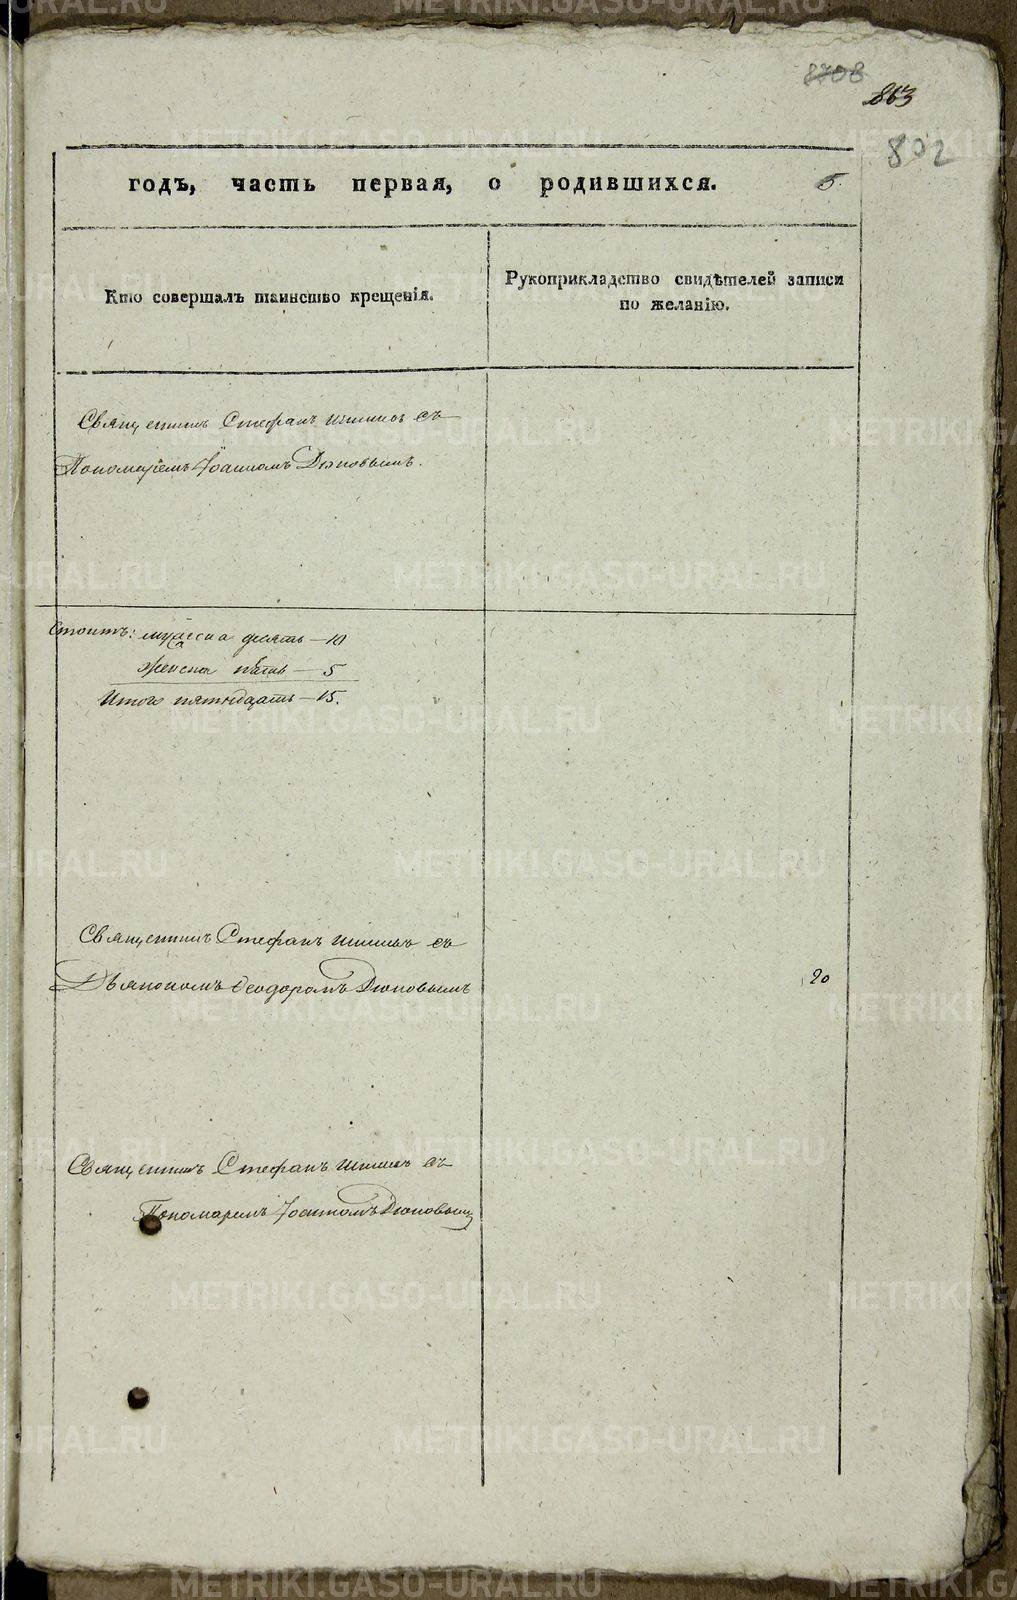 8708
863
802
годъ, часть первая, о родившихся. 5.
Кто совершалъ таинство крещенія.
Рукоприкладство свидѣтелей записи
по желанію.
Священникъ Стефанъ съ
Пономаремъ Іоанномъ Дюповымъ.
Стоитъ: мужеска десять — 10
Женска пять — 5
Итого пятнадцать — 15.
Священникъ Стефанъ съ
Дьякономъ Ѳеодоромъ Дюповымъ
20
Священникъ Стефанъ съ
Пономаремъ Іоанномъ Дюповымъ
METRIKI.GASO-URAL.RU